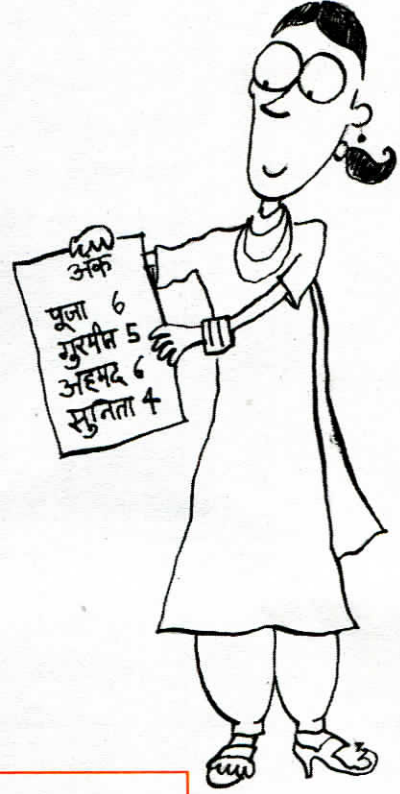 अंक
पूजा 6
गुरमीत 5
अहमद 6
सुनिता 4